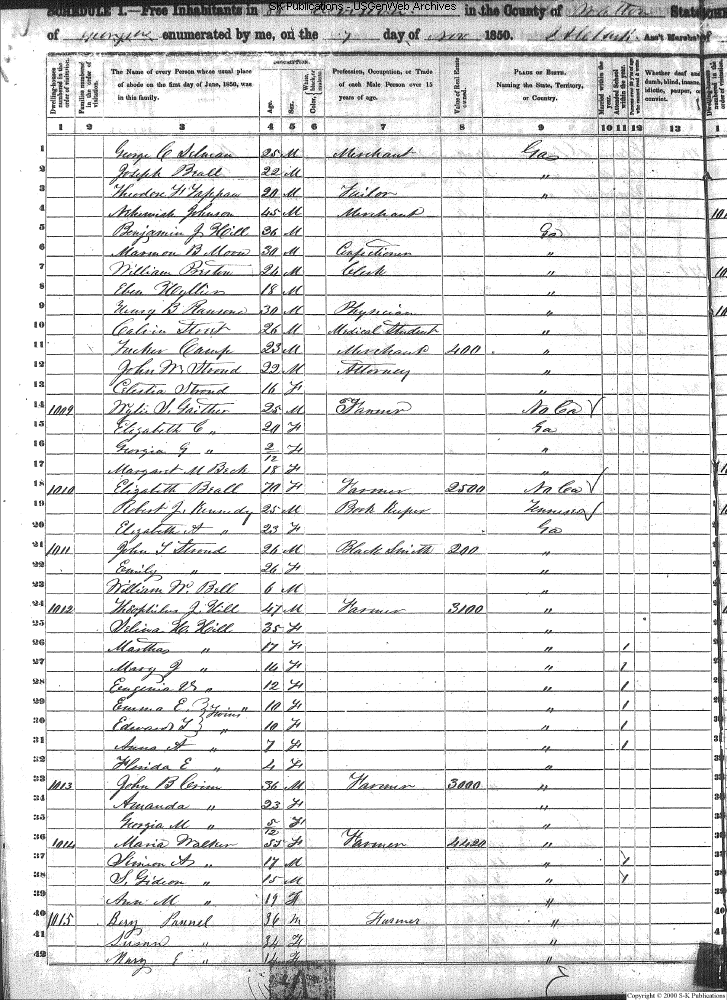 S-K Publications - USGenWeb Archives
SCHEDULE I.—Free Inhabitants in in the County of Walton State
of Georgia enumerated by me, on the 7 day of Nov 1850. Ass't Marshal
Dwelling-houses numbered in the order of visitation.
Families numbered in the order of visitation.
The Name of every Person whose usual place of abode on the first day of June, 1850, was in this family.
DESCRIPTION.
Age.
Sex.
Color, White, black, or mulatto.
Profession, Occupation, or Trade of each Male Person over 15 years of age.
Value of Real Estate owned.
PLACE OF BIRTH. Naming the State, Territory, or Country.
Married within the year.
Attended School within the year.
Whether deaf and dumb, blind, insane, idiotic, pauper, or convict.
1 2 3 4 5 6 7 8 9 10 11 12 13 1
1 George C Selman 25 M Merchant Ga
2 Joseph Beall 22 M "
3 Theodore Tappan 20 M Tailor "
4 Nehemiah Johnson 45 M Merchant
5 Benjamin J Hill 36 M Ga
6 Marmon B Moon 30 M Confectioner "
7 William Breton 24 M Clerk "
8 Eben 18 M "
9 Henry B Ransone 30 M Physician "
10 Calvin Street 26 M Medical Student "
11 Tucker Camp 23 M Merchant 400 "
12 John W Stroud 22 M Attorney "
13 Celestia Stroud 16 F "
14 1009 Wylie S Gaither 25 M Farmer No Ca
15 Elizabeth C " 20 F Ga
16 Georgia G " 2/12 F "
17 Margaret M Beck 18 F "
18 1010 Elizabeth Beall 70 F Farmer 2500 No Ca
19 Robert J Kennedy 25 M Book Keeper Tennessee
20 Elizabeth A " 23 F Ga
21 1011 John T Stroud 26 M Black Smith 200 "
22 Emily " 26 F "
23 William W. Bell 6 M "
24 1012 Theophilus J. Hill 47 M Farmer 3100 "
25 Selina H. Hill 35 F "
26 Martha " 17 F " 1
27 Mary J " 14 F " 1
28 Eugenia V " 12 F " 1
29 Emma E. } Twins " 10 F " 1
30 Edward T } " 10 F " 1
31 Anna A " 7 F " 1
32 Florida E " 4 F "
33 1013 John B Cerim 36 M Farmer 3000 "
34 Amanda " 23 F "
35 Georgia M " 5/12 F "
36 1014 Maria Walker 55 F Farmer 4420 "
37 Simion A " 17 M " 1
38 S. Gideon " 15 M " 1
39 Ann M " 19 F "
40 1015 Berry Pannel 36 m Farmer "
41 Susan " 34 F "
42 Mary E " 14 F "
Copyright © 2000 S-K Publications